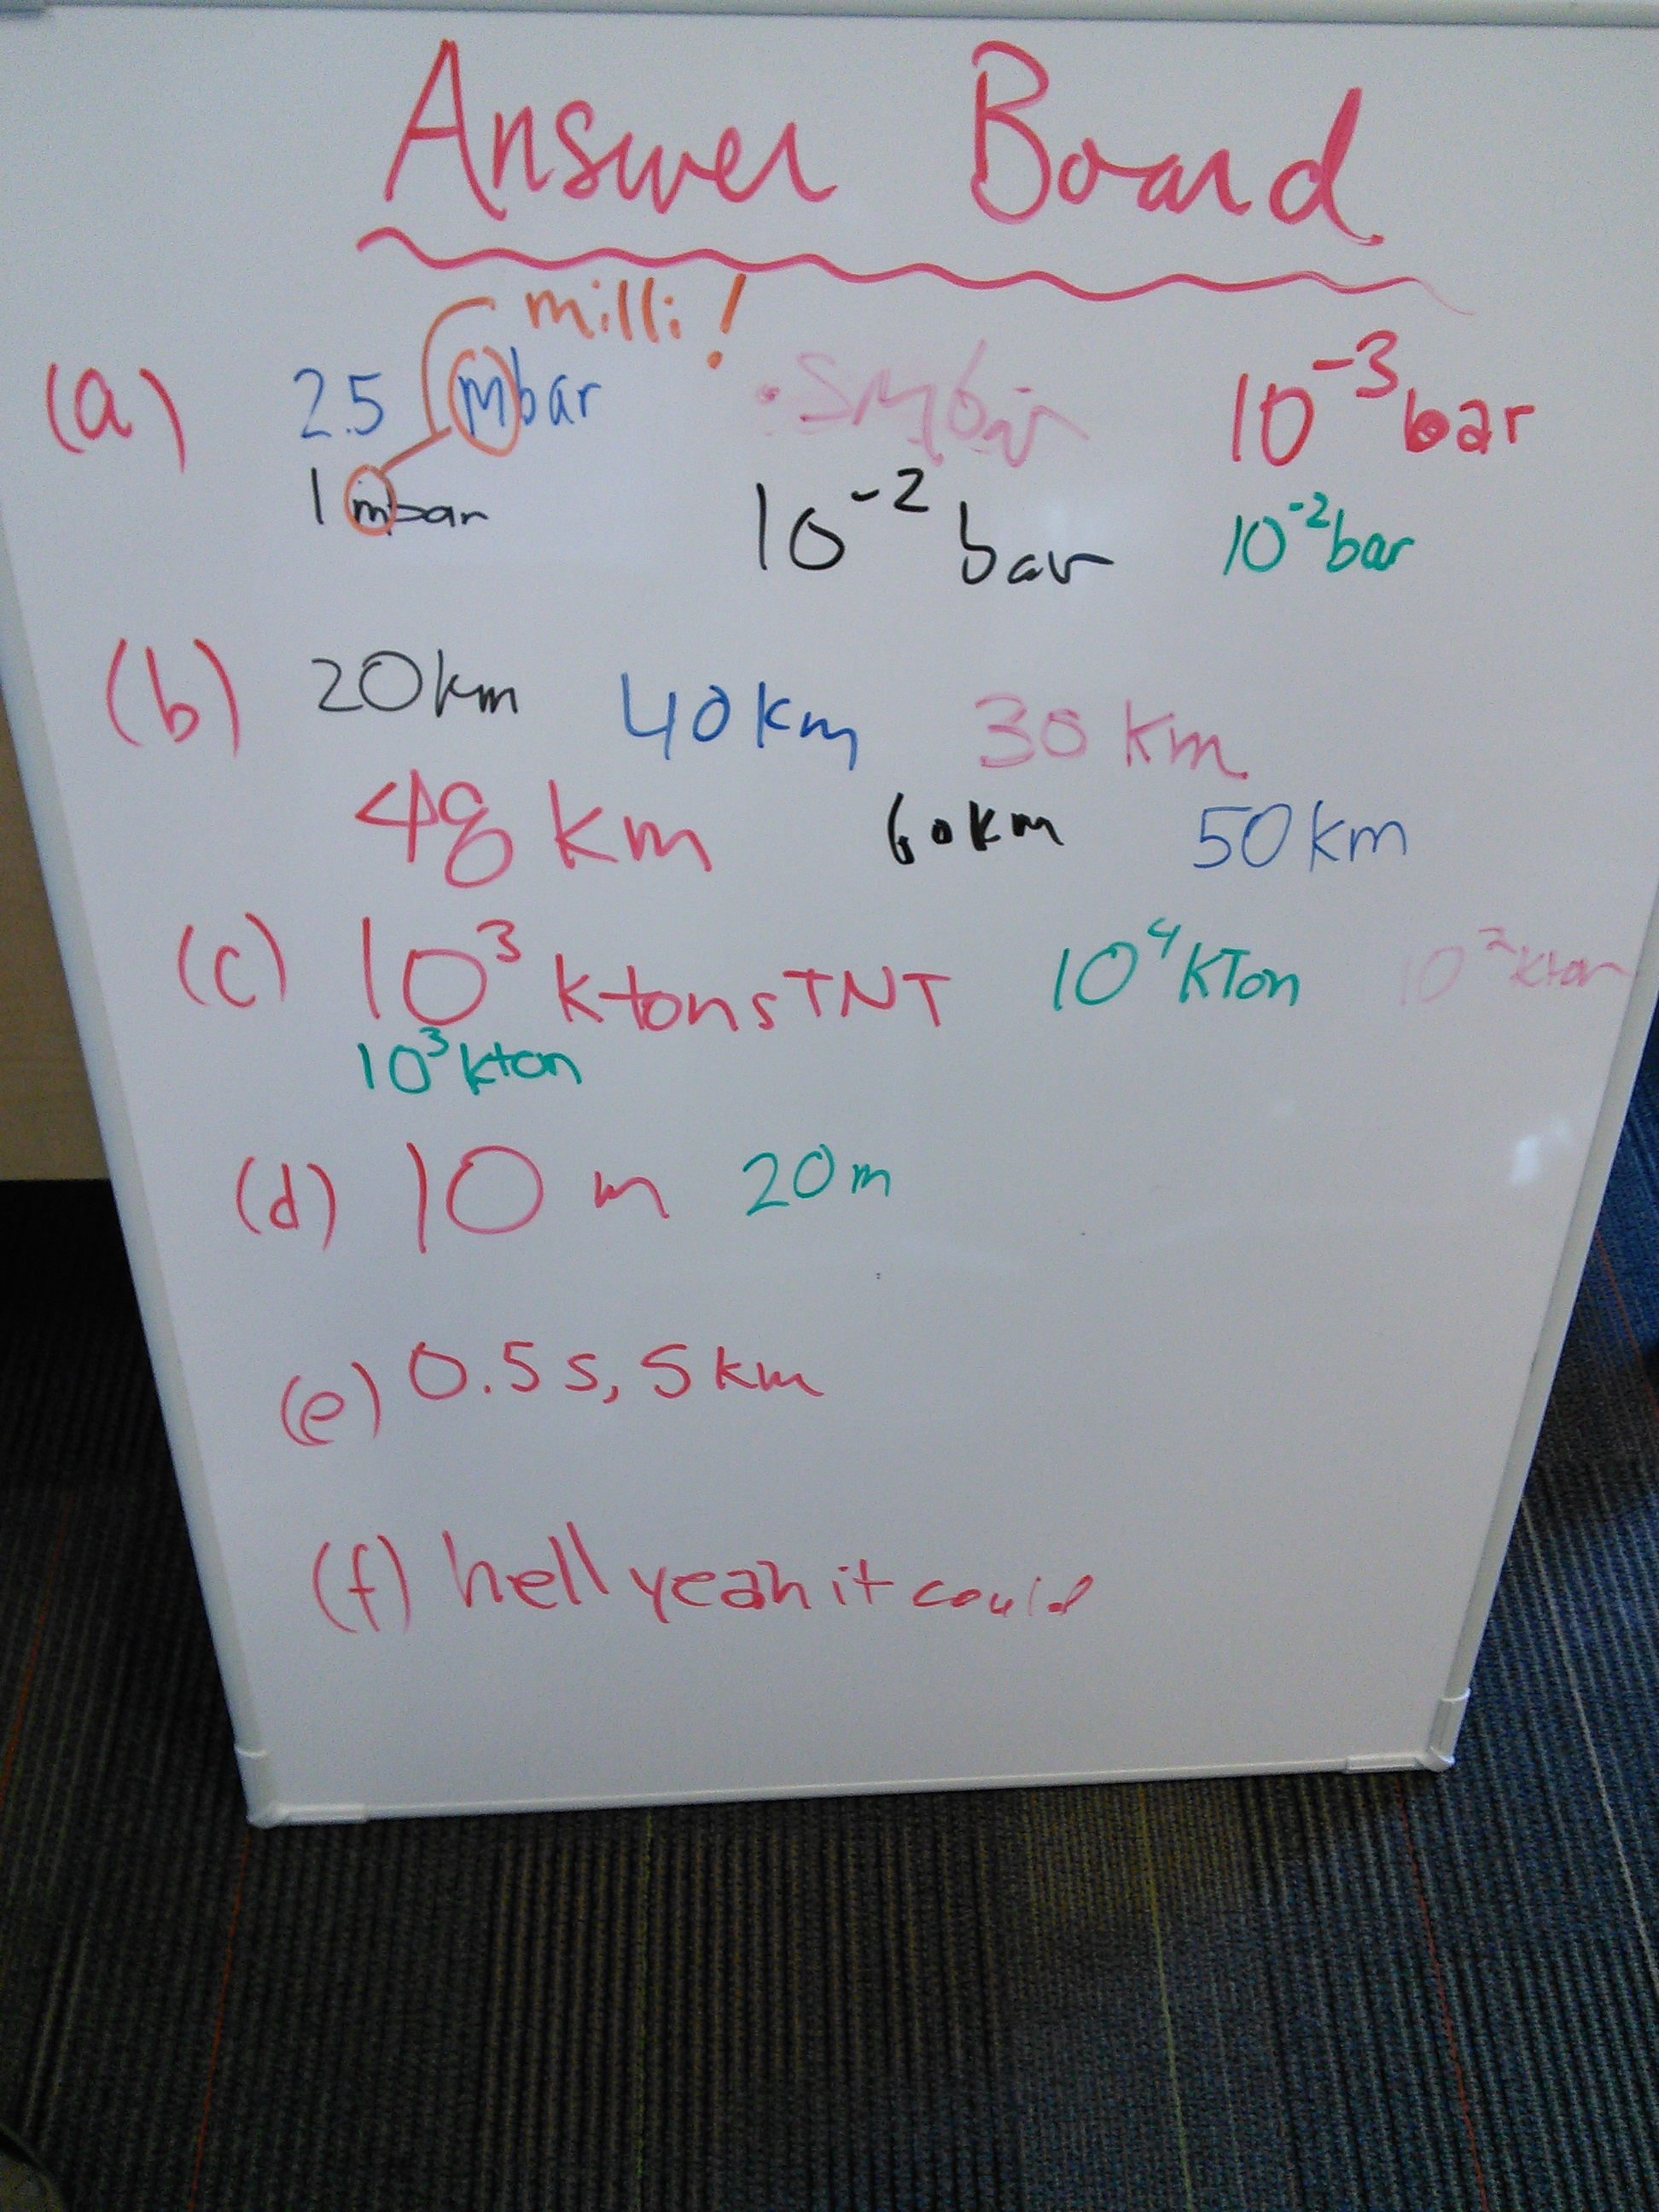 Answer Board
milli!
(a) 2.5 mbar .5mbar 10⁻³ bar
1 mbar 10⁻² bar 10⁻² bar
(b) 20km 40km 30 km
48 km 60km 50km
(c) 10³ ktons TNT 10⁴ KTon 10² kton
10³ kton
(d) 10 m 20m
(e) 0.5 s, 5 km
(f) hell yeah it could